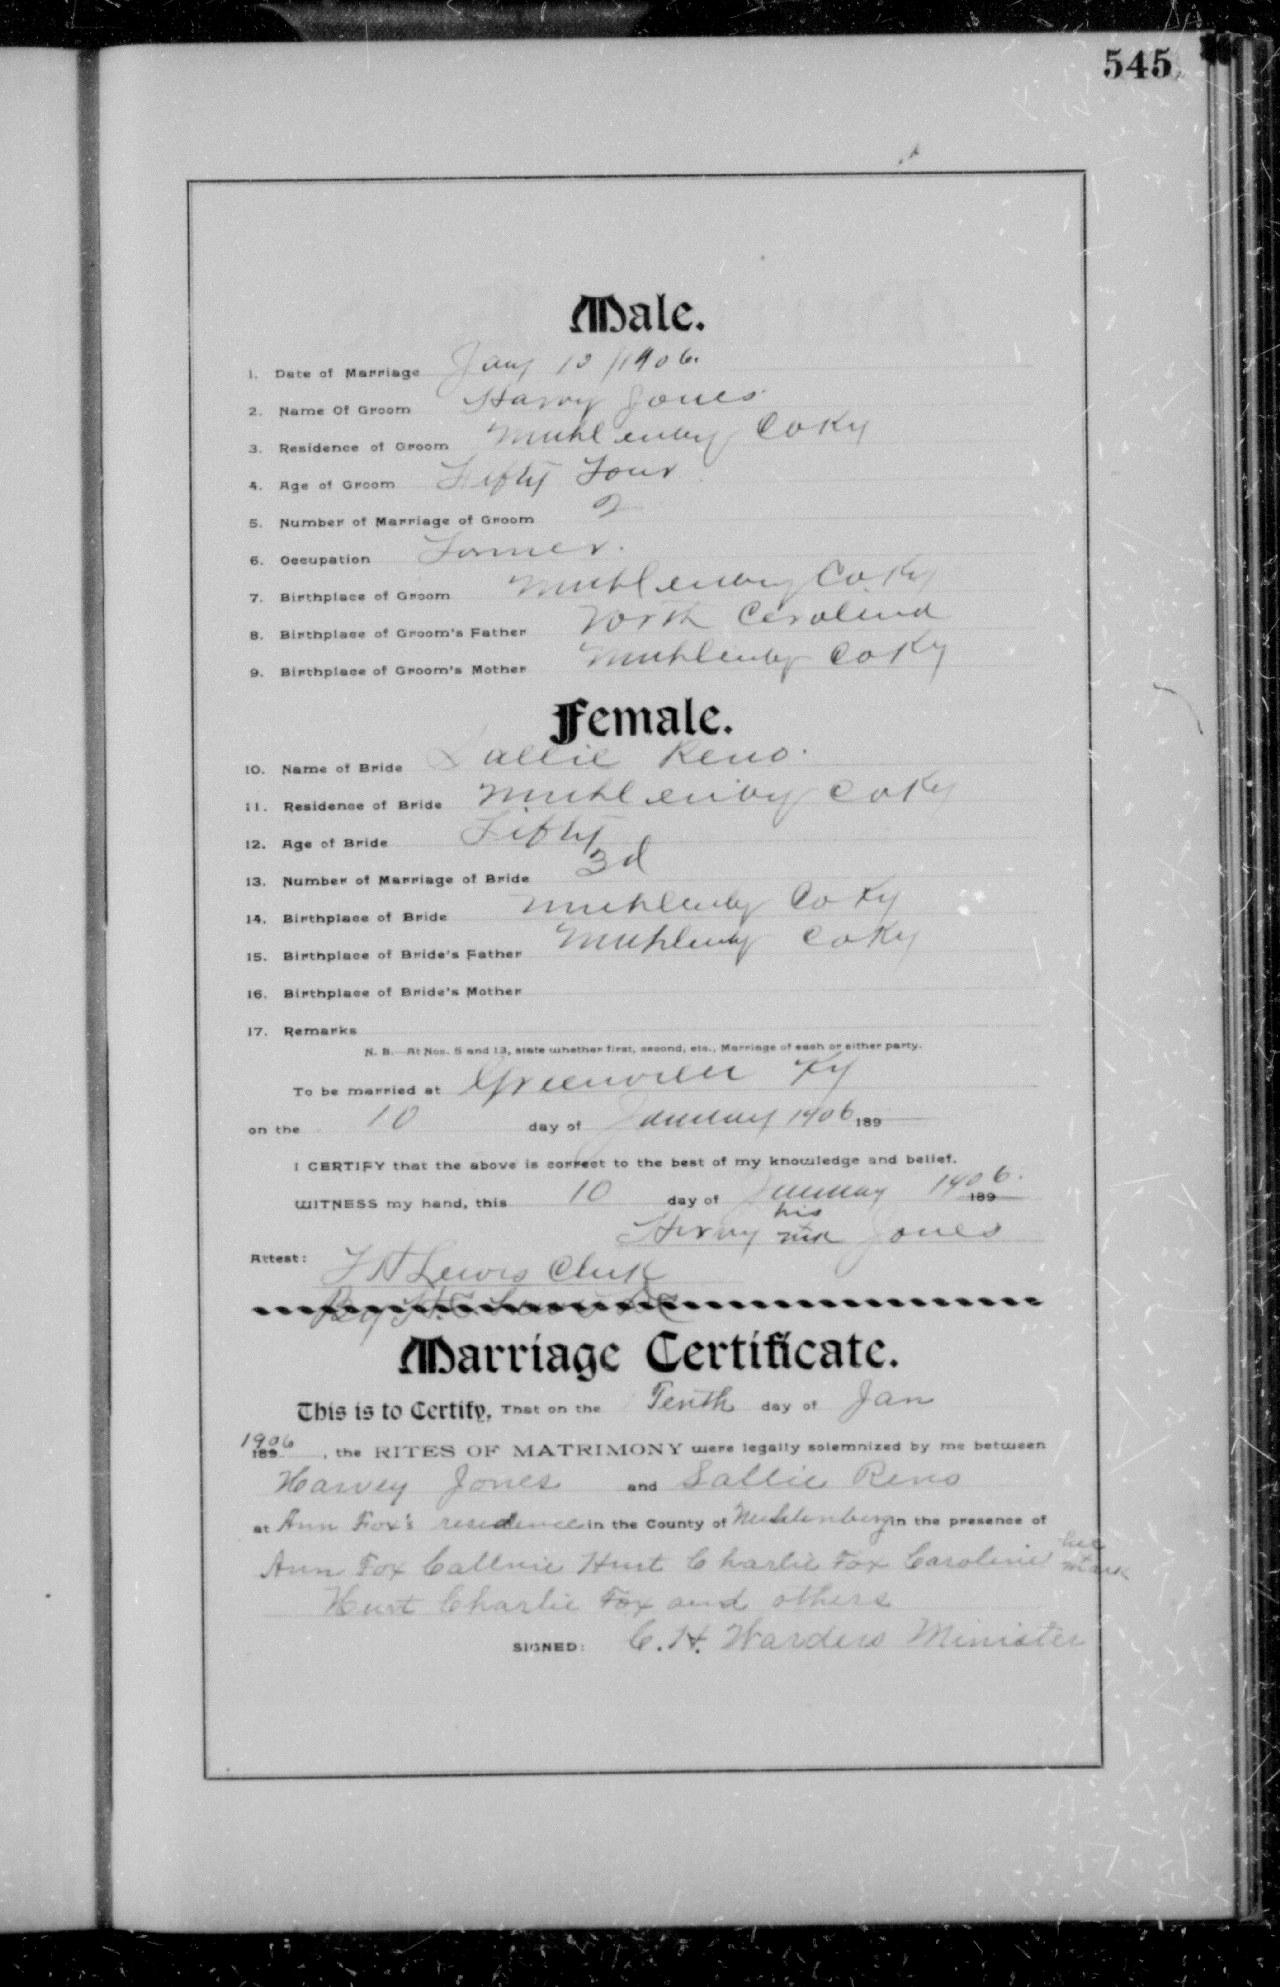 545
Male.
1. Date of Marriage Jany 10 1906.
2. Name Of Groom Harvy Jones
3. Residence of Groom Muhlenberg Co Ky
4. Age of Groom Fifty Four
5. Number of Marriage of Groom 2
6. Occupation Farmer.
7. Birthplace of Groom Muhlenberg Co Ky
8. Birthplace of Groom's Father North Carolina
9. Birthplace of Groom's Mother Muhlenberg Co Ky
Female.
10. Name of Bride Sallie Reno.
11. Residence of Bride Muhlenberg Co Ky
12. Age of Bride Fifty
13. Number of Marriage of Bride 3d
14. Birthplace of Bride Muhlenberg Co Ky
15. Birthplace of Bride's Father Muhlenberg Co Ky
16. Birthplace of Bride's Mother
17. Remarks
N. B.—At Nos. 5 and 13, state whether first, second, etc., Marriage of each or either party.
To be married at Greenville Ky
on the 10 day of January 1906 189
I CERTIFY that the above is correct to the best of my knowledge and belief.
WITNESS my hand, this 10 day of January 1906. 189
his
Harvy mk Jones
Attest: Lewis Clerk
By
Marriage Certificate.
This is to Certify, That on the Tenth day of Jan
1906 189 , the RITES OF MATRIMONY were legally solemnized by me between
Harvey Jones and Sallie Reno
at Ann Fox's residence in the County of Muhlenberg in the presence of
Ann Fox Callnie Hunt Charlie Fox Caroline her x mark
Hunt Charlie Fox and others
SIGNED: C. H. Warders Minister